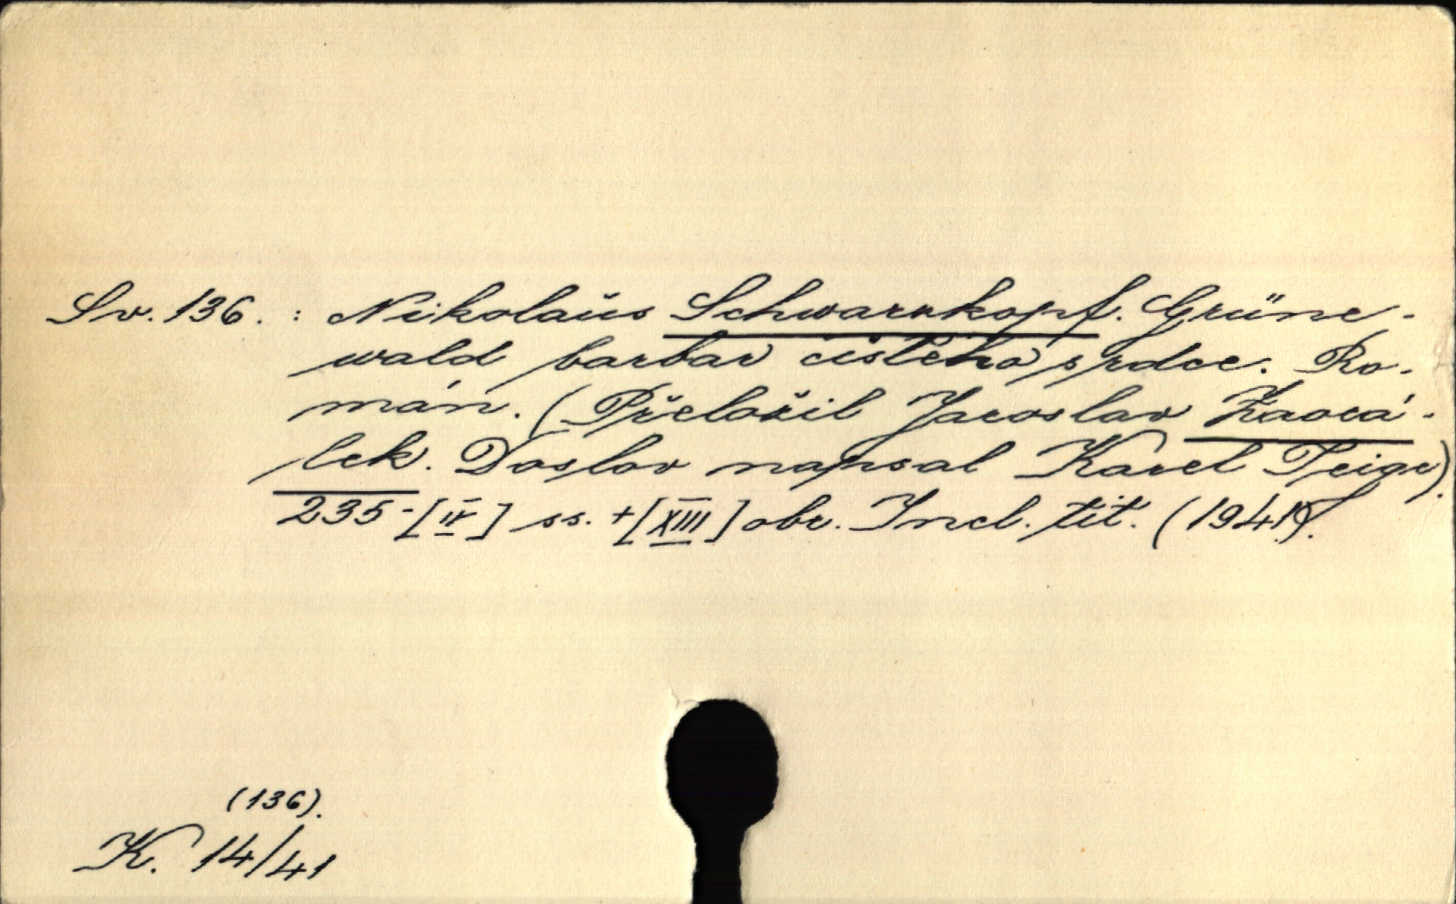 Sv. 136. : Nikolaus Schwarzkopf. Grüne-
wald barbar čistého srdce. Ro-
mán. (Přeložil Jaroslav Zaorá-
lek. Doslov napsal Karel Teige).
235-[IV] ss. + [XIII] obr. Incl. tit. (1941).
(136).
K. 14/41